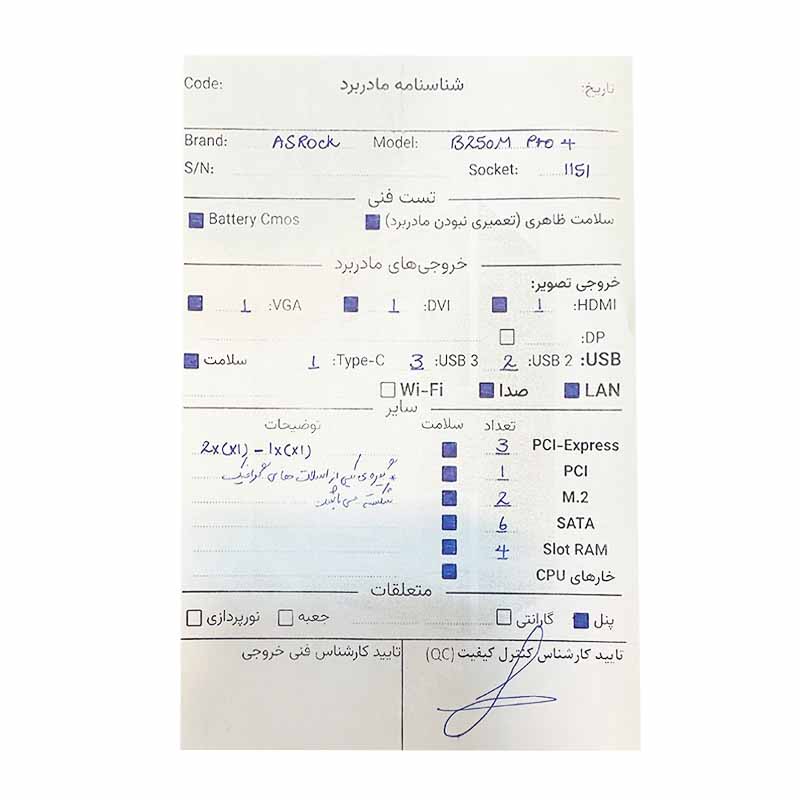 Code: شناسنامه مادربرد تاریخ:
Brand: ASRock Model: B250M Pro 4
S/N: Socket: 1151
تست فنی
سلامت ظاهری (تعمیری نبودن مادربرد) Battery Cmos
خروجی‌های مادربرد
خروجی تصویر:
HDMI: 1 DVI: 1 VGA: 1
DP:
USB: USB 2: 2 USB 3: 3 Type-C: 1 سلامت
LAN صدا Wi-Fi
سایر
تعداد سلامت توضیحات
PCI-Express 3 2x(x1) - 1x(x1)
PCI 1 * گیره ی یکی از اسلات های گرافیک
M.2 2 شکسته می باشد
SATA 6
Slot RAM 4
خارهای CPU
متعلقات
پنل گارانتی جعبه نورپردازی
تایید کارشناس کنترل کیفیت (QC) تایید کارشناس فنی خروجی